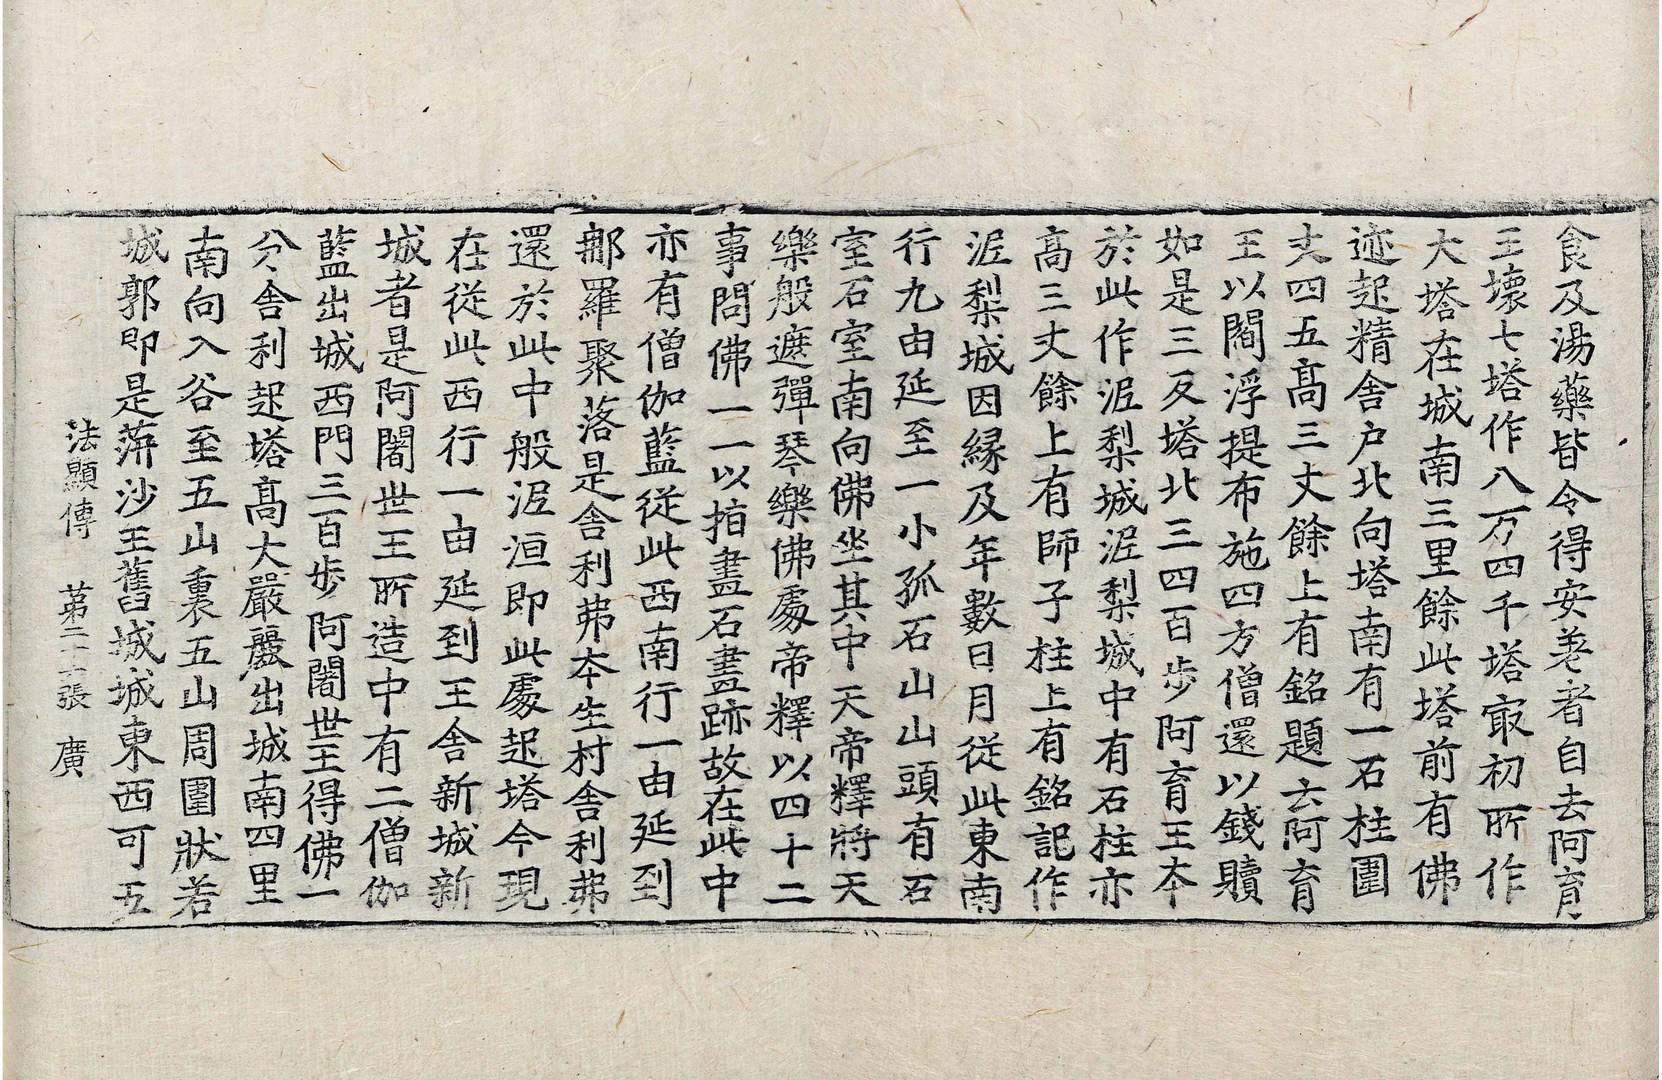 食及湯藥皆令得安差者自去阿育
王壞七塔作八万四千塔㝡初所作
大塔在城南三里餘此塔前有佛
迹起精舍户北向塔南有一石柱圍
丈四五髙三丈餘上有銘題云阿育
王以閻浮提布施四方僧還以錢贖
如是三反塔北三四百步阿育王本
於此作泥梨城泥梨城中有石柱亦
髙三丈餘上有師子柱上有銘記作
泥梨城因緣及年數日月從此東南
行九由延至一小孤石山山頭有石
室石室南向佛坐其中天帝釋將天
樂般遮彈琴樂佛處帝釋以四十二
事問佛一一以指畫石畫跡故在此中
亦有僧伽藍從此西南行一由延到
那羅聚落是舍利弗本生村舍利弗
還於此中般泥洹即此處起塔今現
在從此西行一由延到王舍新城新
城者是阿闍世王所造中有二僧伽
藍出城西門三百步阿闍世王得佛一
分舍利起塔髙大嚴麗出城南四里
南向入谷至五山裏五山周圍狀若
城郭即是蓱沙王舊城城東西可五
法顯傳 第二十張 廣